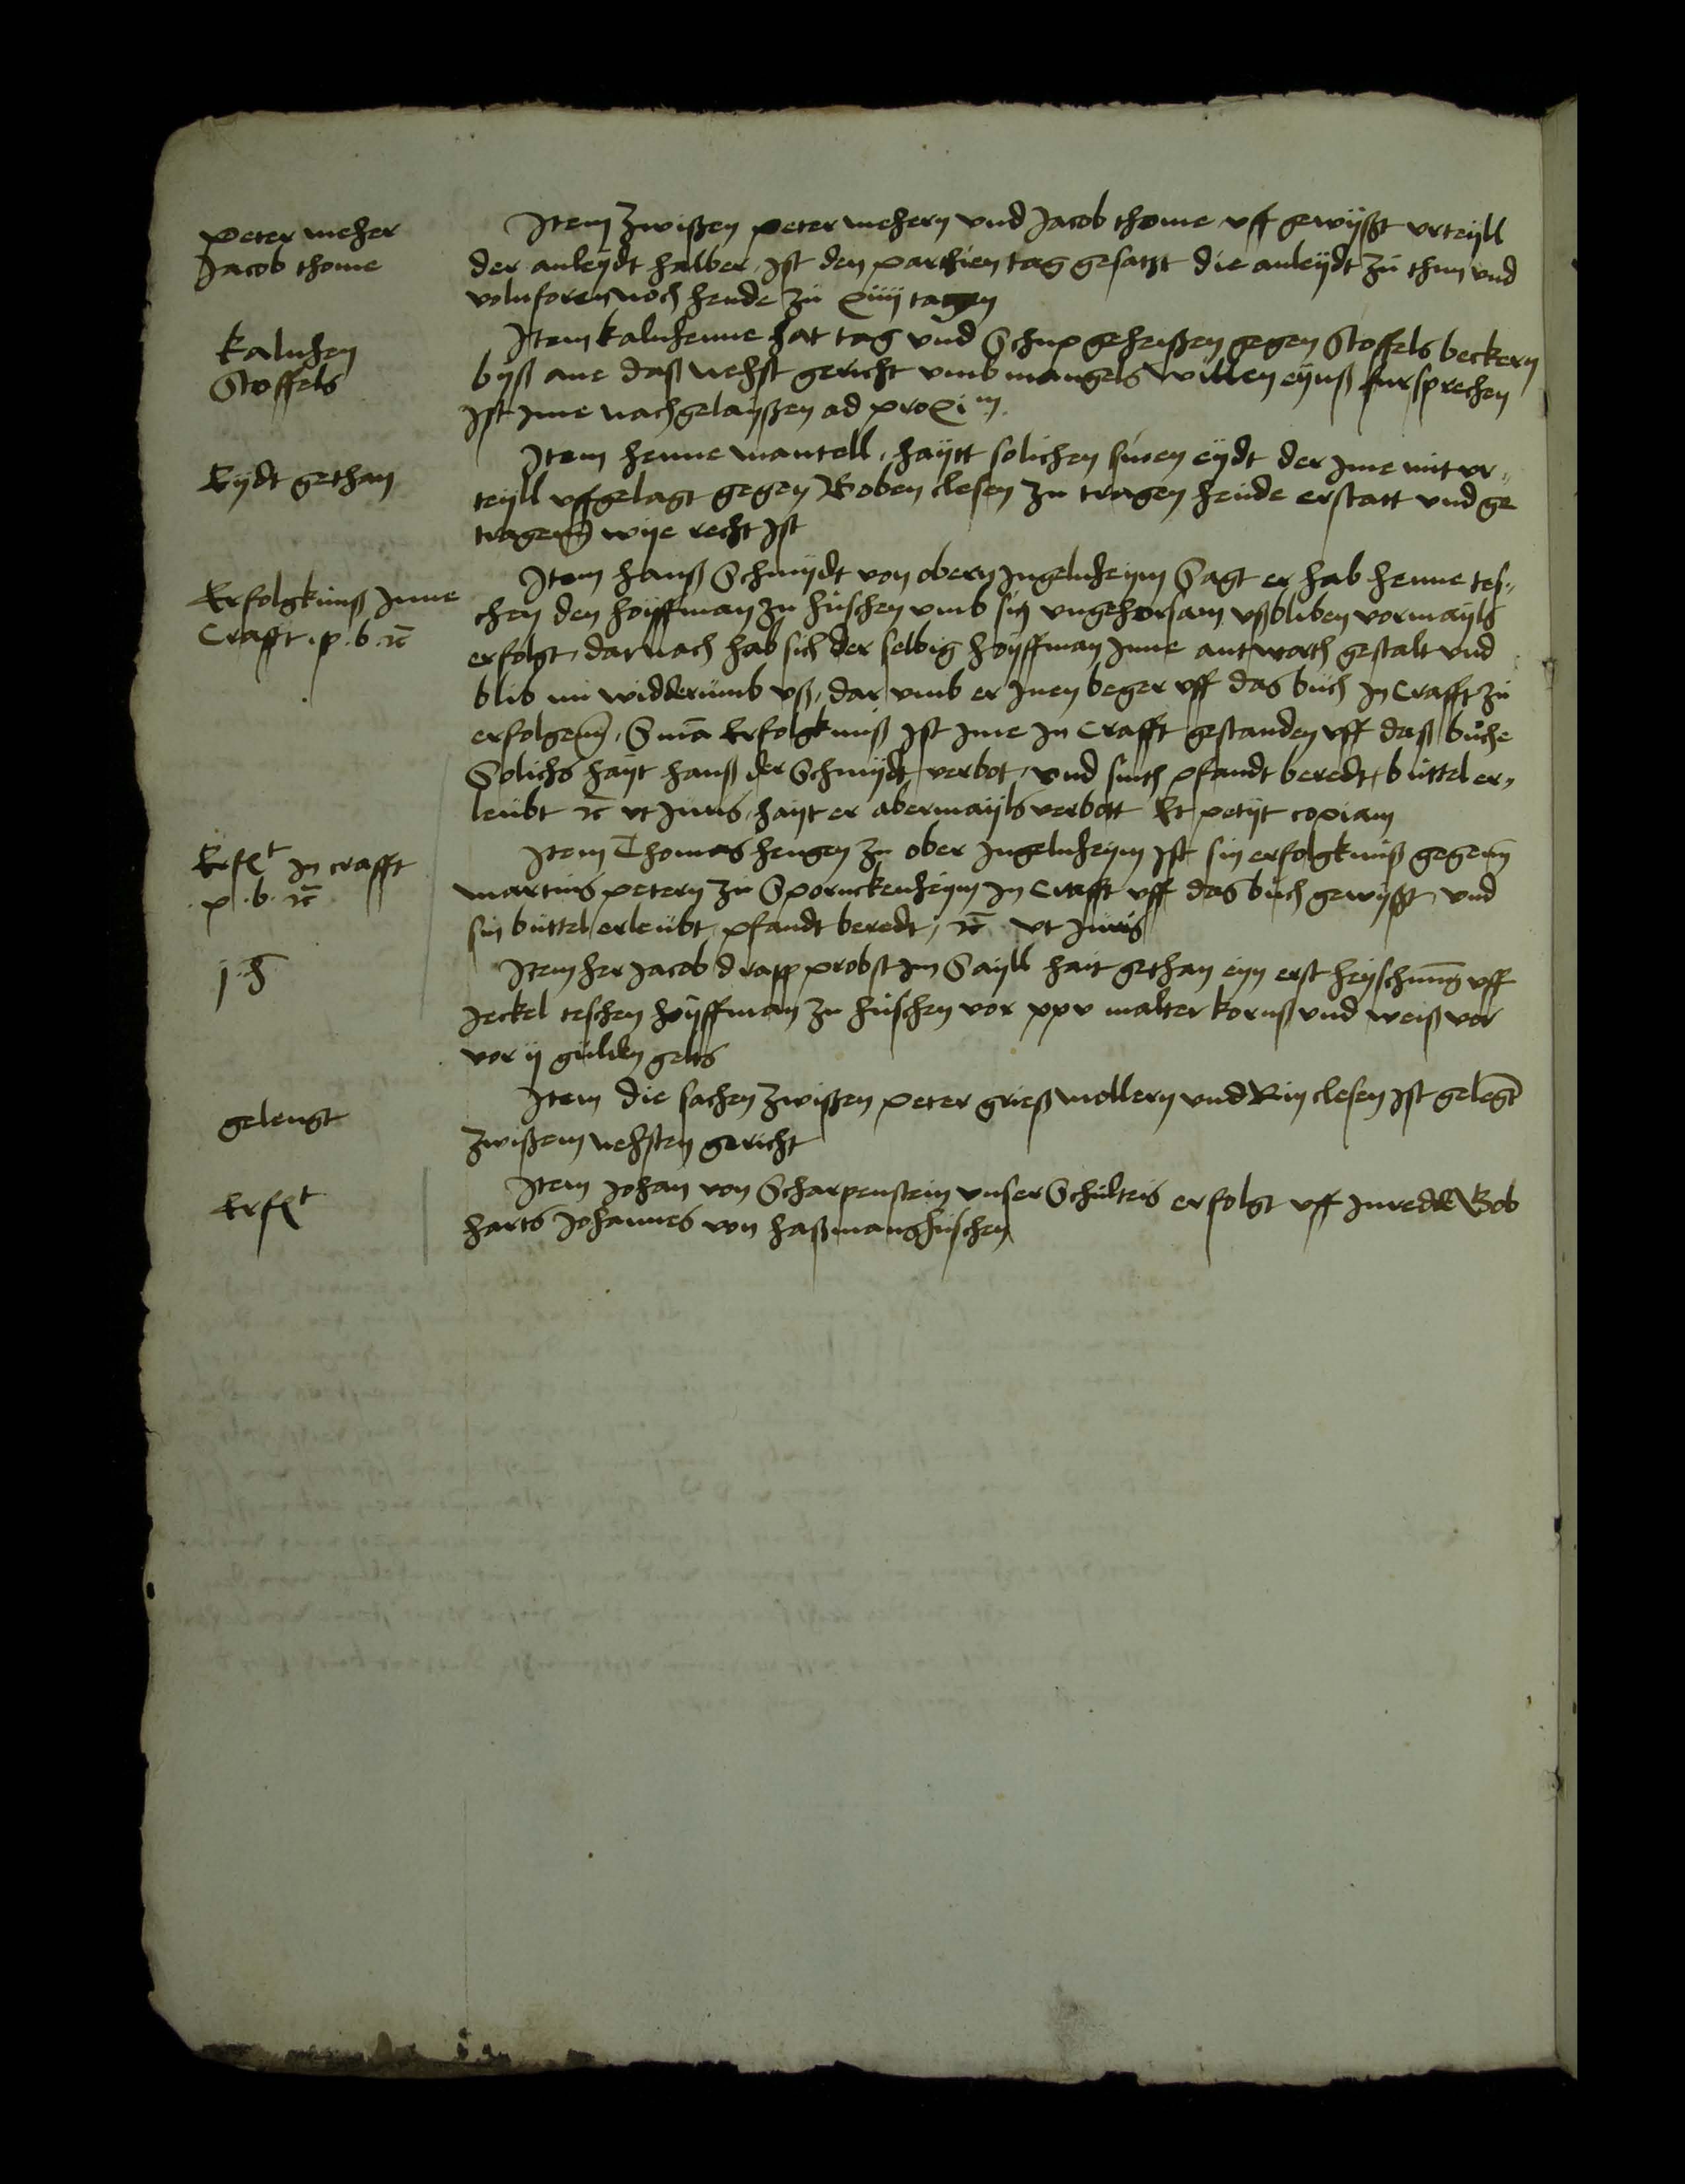 Peter meher
Jacob thome
Item zwißen peter mehern vnd Jacob thome vff gewyßt vrteyll
der anleydt halber Ist den parthien tag gesatzt die anleydt zu thun vnd
volnforen noch heude zu xiiij tagen
kalnhen
Stoffels
Item kalnhenne hat tag vnd Schup geheißen gegen Stoffels beckern
byß ane daß nehst gericht vmb mangels willen eynß fursprechen
Ist Jme nachgelayßen ad proxim
Eydt gethan
Item henne mantell haytt solichen sinen eydt der Jme mit vr„
teyll vffgelagt gegen Boben clesen zu tragen heude erstatt vnd ge
tragenn wye recht Ist
Erfolgkniß Jnne
Crafft . p . b . rc
Item hanß Schmydt von obern Jngelnheym Sagt er hab henne tes„
chen den hoyffman zu hüschen vmb sin vngehorsam vßbliben vormayls
erfolgt dar nach hab sich der selbig hoyffman Jnne antworth gestalt vnd
blib nu widderumb vß dar vmb er Jnen beger vff das buch Jn Crafft zu
erfolgenn Sin Erfolgkniß Ist Jme Jn Crafft gestanden vff daß buche
Solichs hayt hanß der Schmydt verbot vnd sinth pfandt beredt büttel er„
leubt rc vt Juris hayt er abermayls verbott Et petijt copiam
Erft In crafft
. p . b . rc
Item Thomas hengen zu ober Jngelnheym Ist sin erfolgkniß gegenn
martins petern zu Spornckenheym Jn Crafft vff das buch gewyßt vnd
sin büttel erleubt pfandt beredt rc vt Juris
j . h
Item her Jacob drapp probst Jm Sayll hait gethan eyn erst heyschung vff
Jeckel teschen hoyffman zu hüschen vor xxv malter kornß vnd weiß vor
vor ij gulden gelts
gelengt
Item die sachen zwißen peter grieß mollern vnd Rin clesen Ist gelegt
zwißem nehsten gericht
Erft
Item Johan von Scharpenstein vnser Schulteis erfolgt vff Jnrede Bob
harts Johannes von haßmanßhüschen